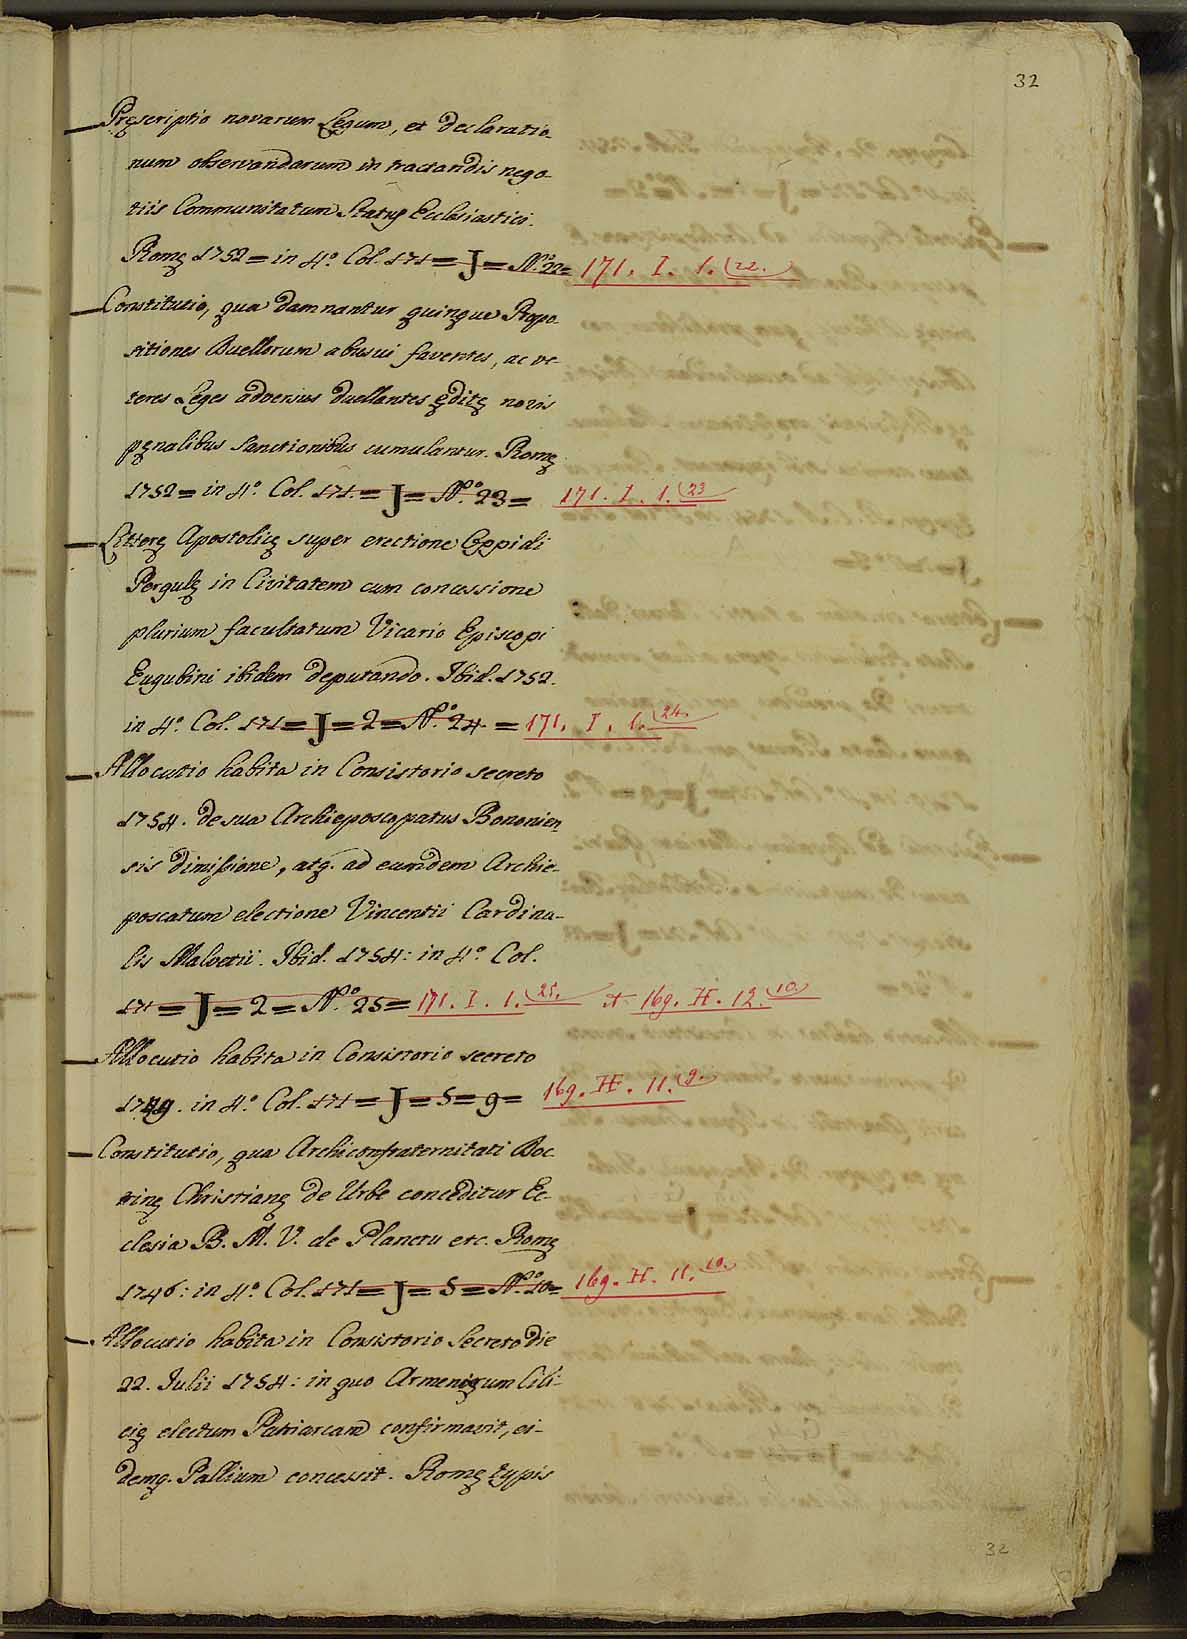 32
Pręscriptio novarum Legum, et declaratio-
num observandarum in tractandis nego-
tiis Communitatum Status Ecclesiastici.
Romę 1752 = in 4.º Col. 171 = J = N.º 22 = 171. I. 1. (22.
Constitutio, qua damnantur quinque Propo-
sitiones Duellorum abusui faventes, ac ve-
teres Leges adversus duellantes ęditę novis
pęnalibus Sanctionibus cumulantur. Romę
1752 = in 4.º Col. 171. = J = N.º 23 = 171. I. 1. (23
Litterę Apostolicę super erectione Oppidi
Pergulę in Civitatem cum concessione
plurium facultatum Vicario Episcopi
Eugubini ibidem deputando. Ibid. 1752.
in 4.º Col. 171 = J = 2 = N.º 24 = 171. I. 1. (24.
Allocutio habita in Consistorio secreto
1754. de sua Archieposcopatus Bononien
sis dimissione, atq. ad eumdem Archie-
poscatum electione Vincentii Cardina-
lis Malvetii. Ibid. 1754: in 4.º Col.
171 = J = 2 = N.º 25 = 171. I. 1. (25. et 169. H. 12. (10.
Allocutio habita in Consistorio secreto
1749. in 4.º Col. 171 = J = 5 = 9 = 169. H. 11. (9.
Constitutio, qua Archiconfraternitati Doc
trinę Christianę de Urbe conceditur Ec-
clesia B. M. V. de Planctu etc. Romę
1746: in 4.º Col. 171 = J = 5 = N.º 10 = 169. H. 11. (10.
Allocutio habita in Consistorio Secreto die
22. Iulii 1754: in quo Armeniorum Cili-
cię electum Patriarcam confirmavit, ei-
demq. Pallium concessit. Romę typis
32